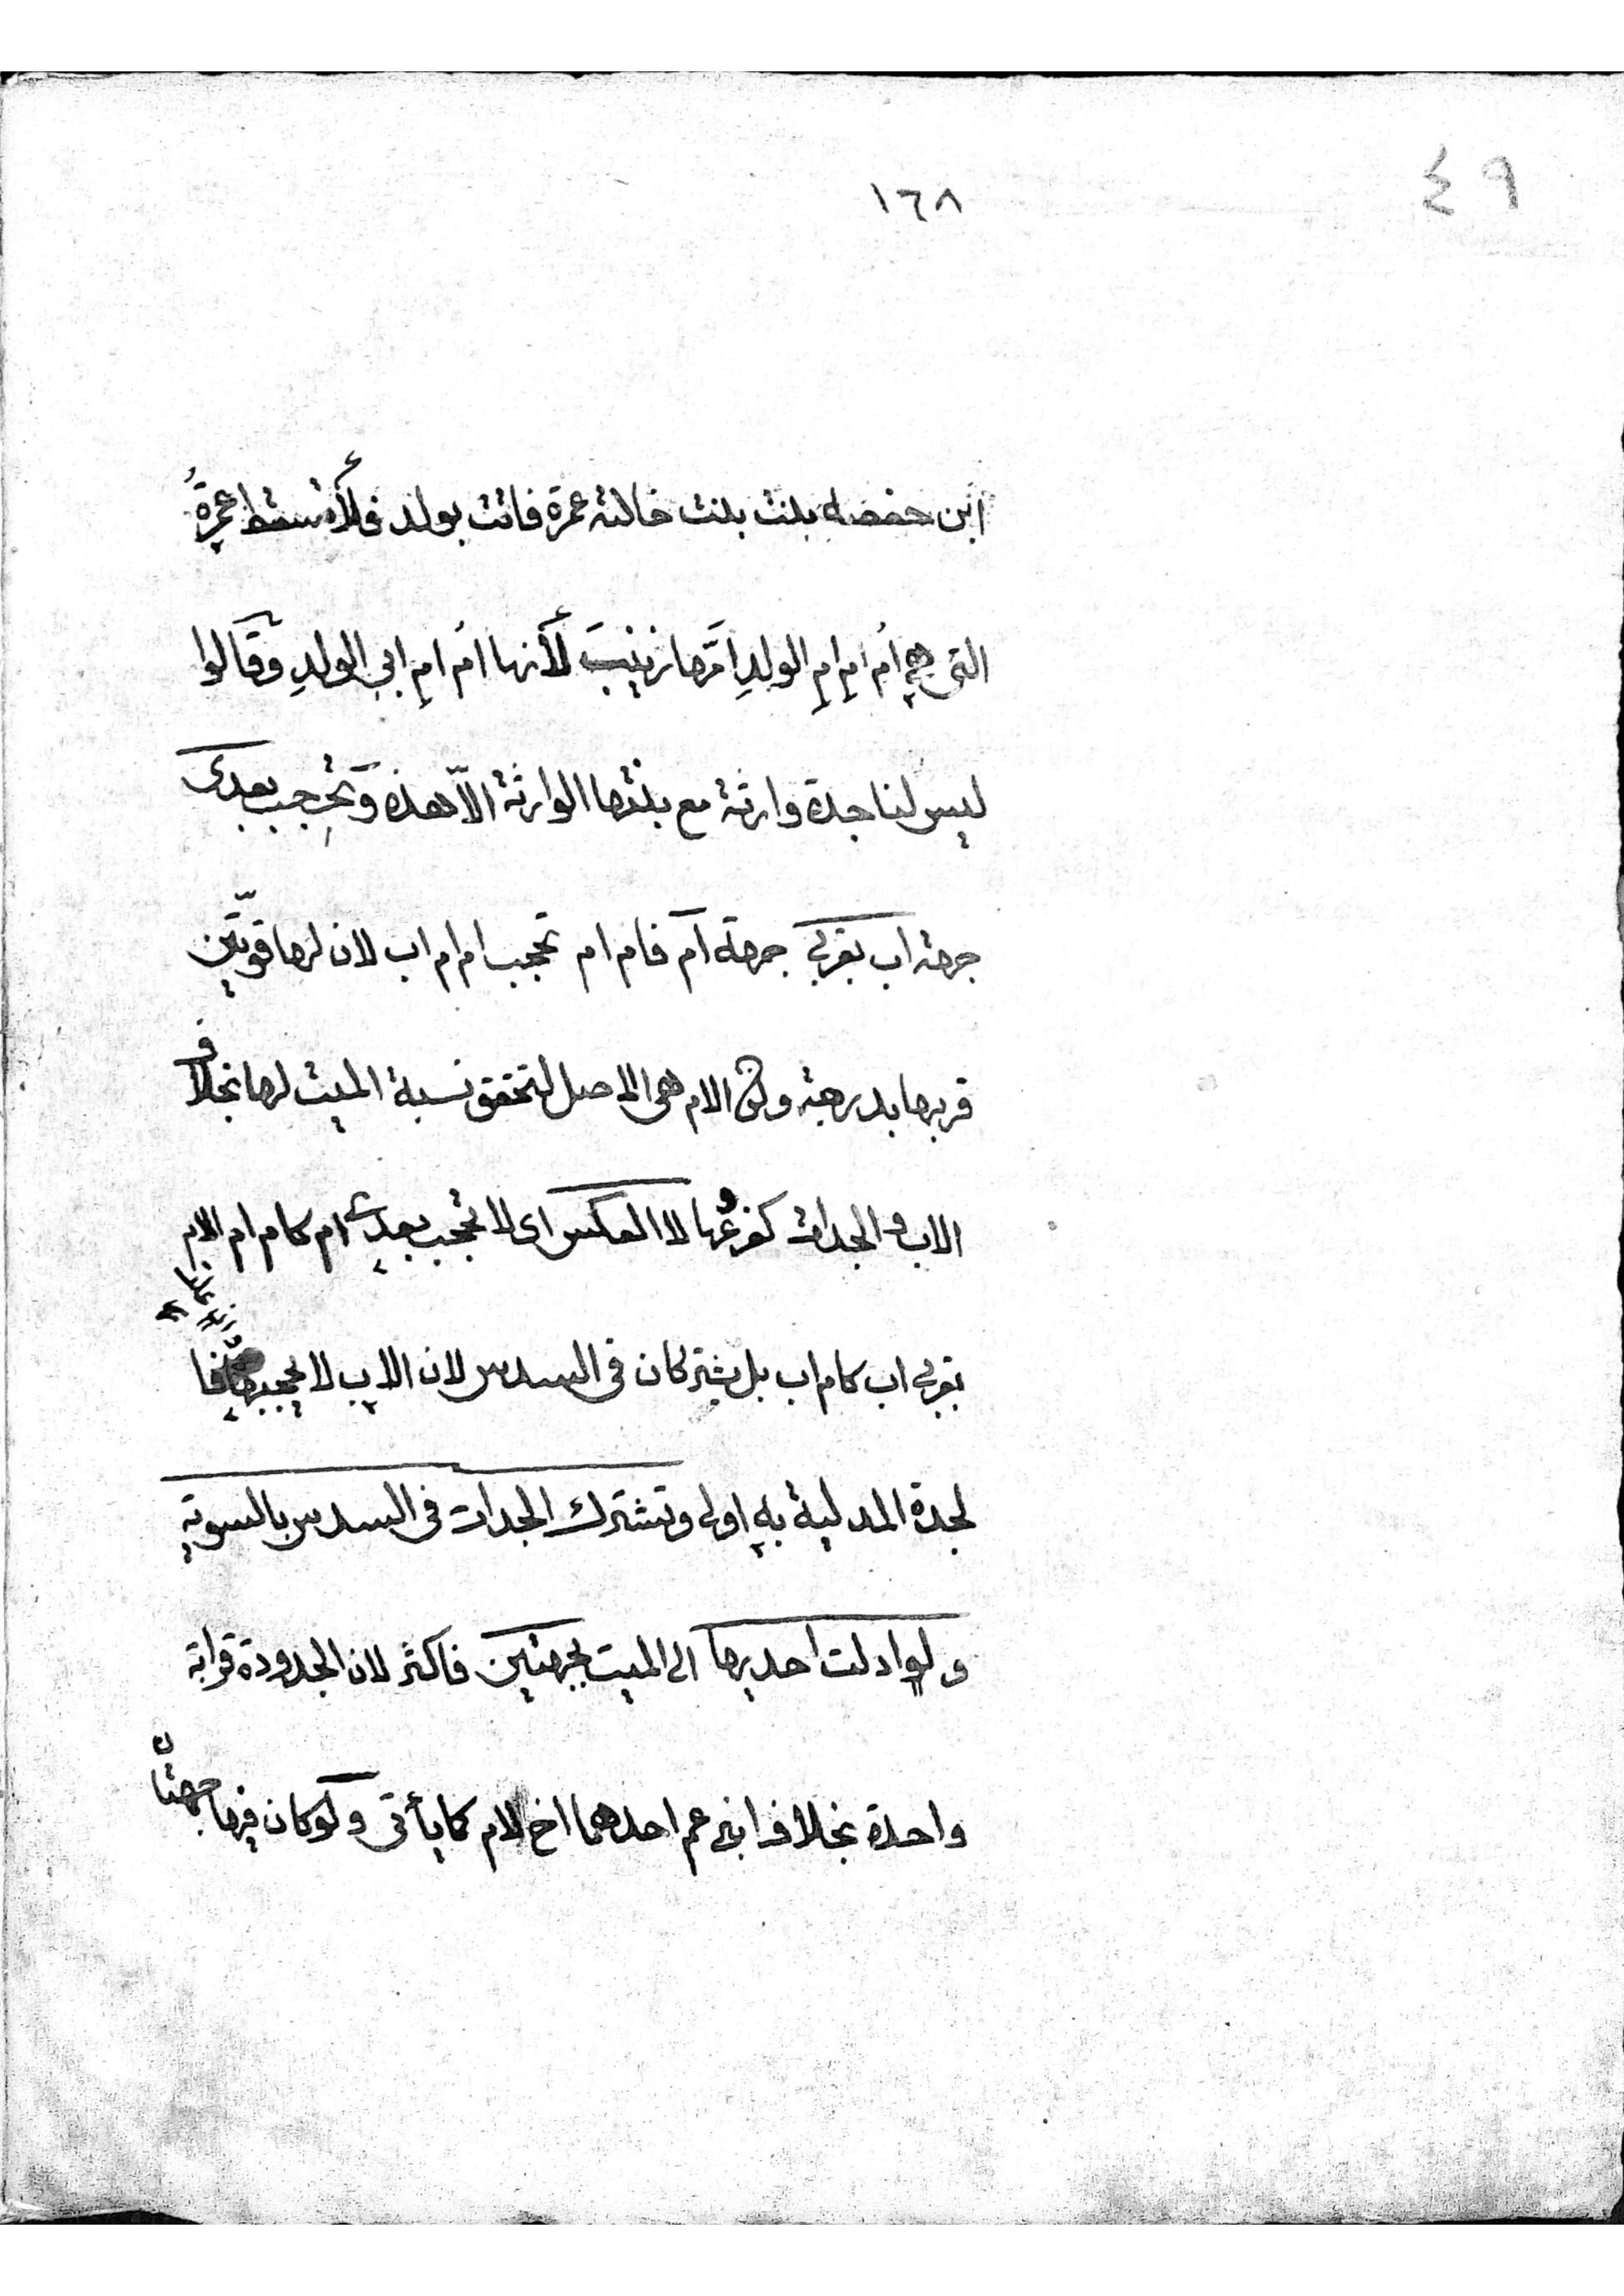 ٤٩
١٦٨
ابن حفصه ببنت بنت خالته عمرة فاتت بولد فلا تسقط عمرةُ
التى هي اُم امِ امِ الولدِ امَّها زينبَ لأنها امُ امِ ابىِ الولدِ وقَالوا
ليس لنا جدة وارثة مع بنتها الوارثة الاّ هذه وتحجب بعدى
جهة اب بقربى جهة ام فام ام تحجب ام ام اب لان لها قوّتين
قربها بدرجة وكون الام هى الاصل لتحقق نسبة الميت لها بخلاف
الاب والجدات كفرعها لا العكس اى لا تحجب بعدى ام كام ام الام
بقربى اب كام اب بل يشتركان فى السدس لان الاب لا يحجبها فا
لجدة المدلية به اولى وتشترك الجدات فى السدس بالسوية
ولو ادلت احديها الى الميت بجهتين فاكثر لان الجدودة قرابة
واحدة بخلاف ابنى عم احدهما اخ لام كما يأتى ولو كان فيها جهتان